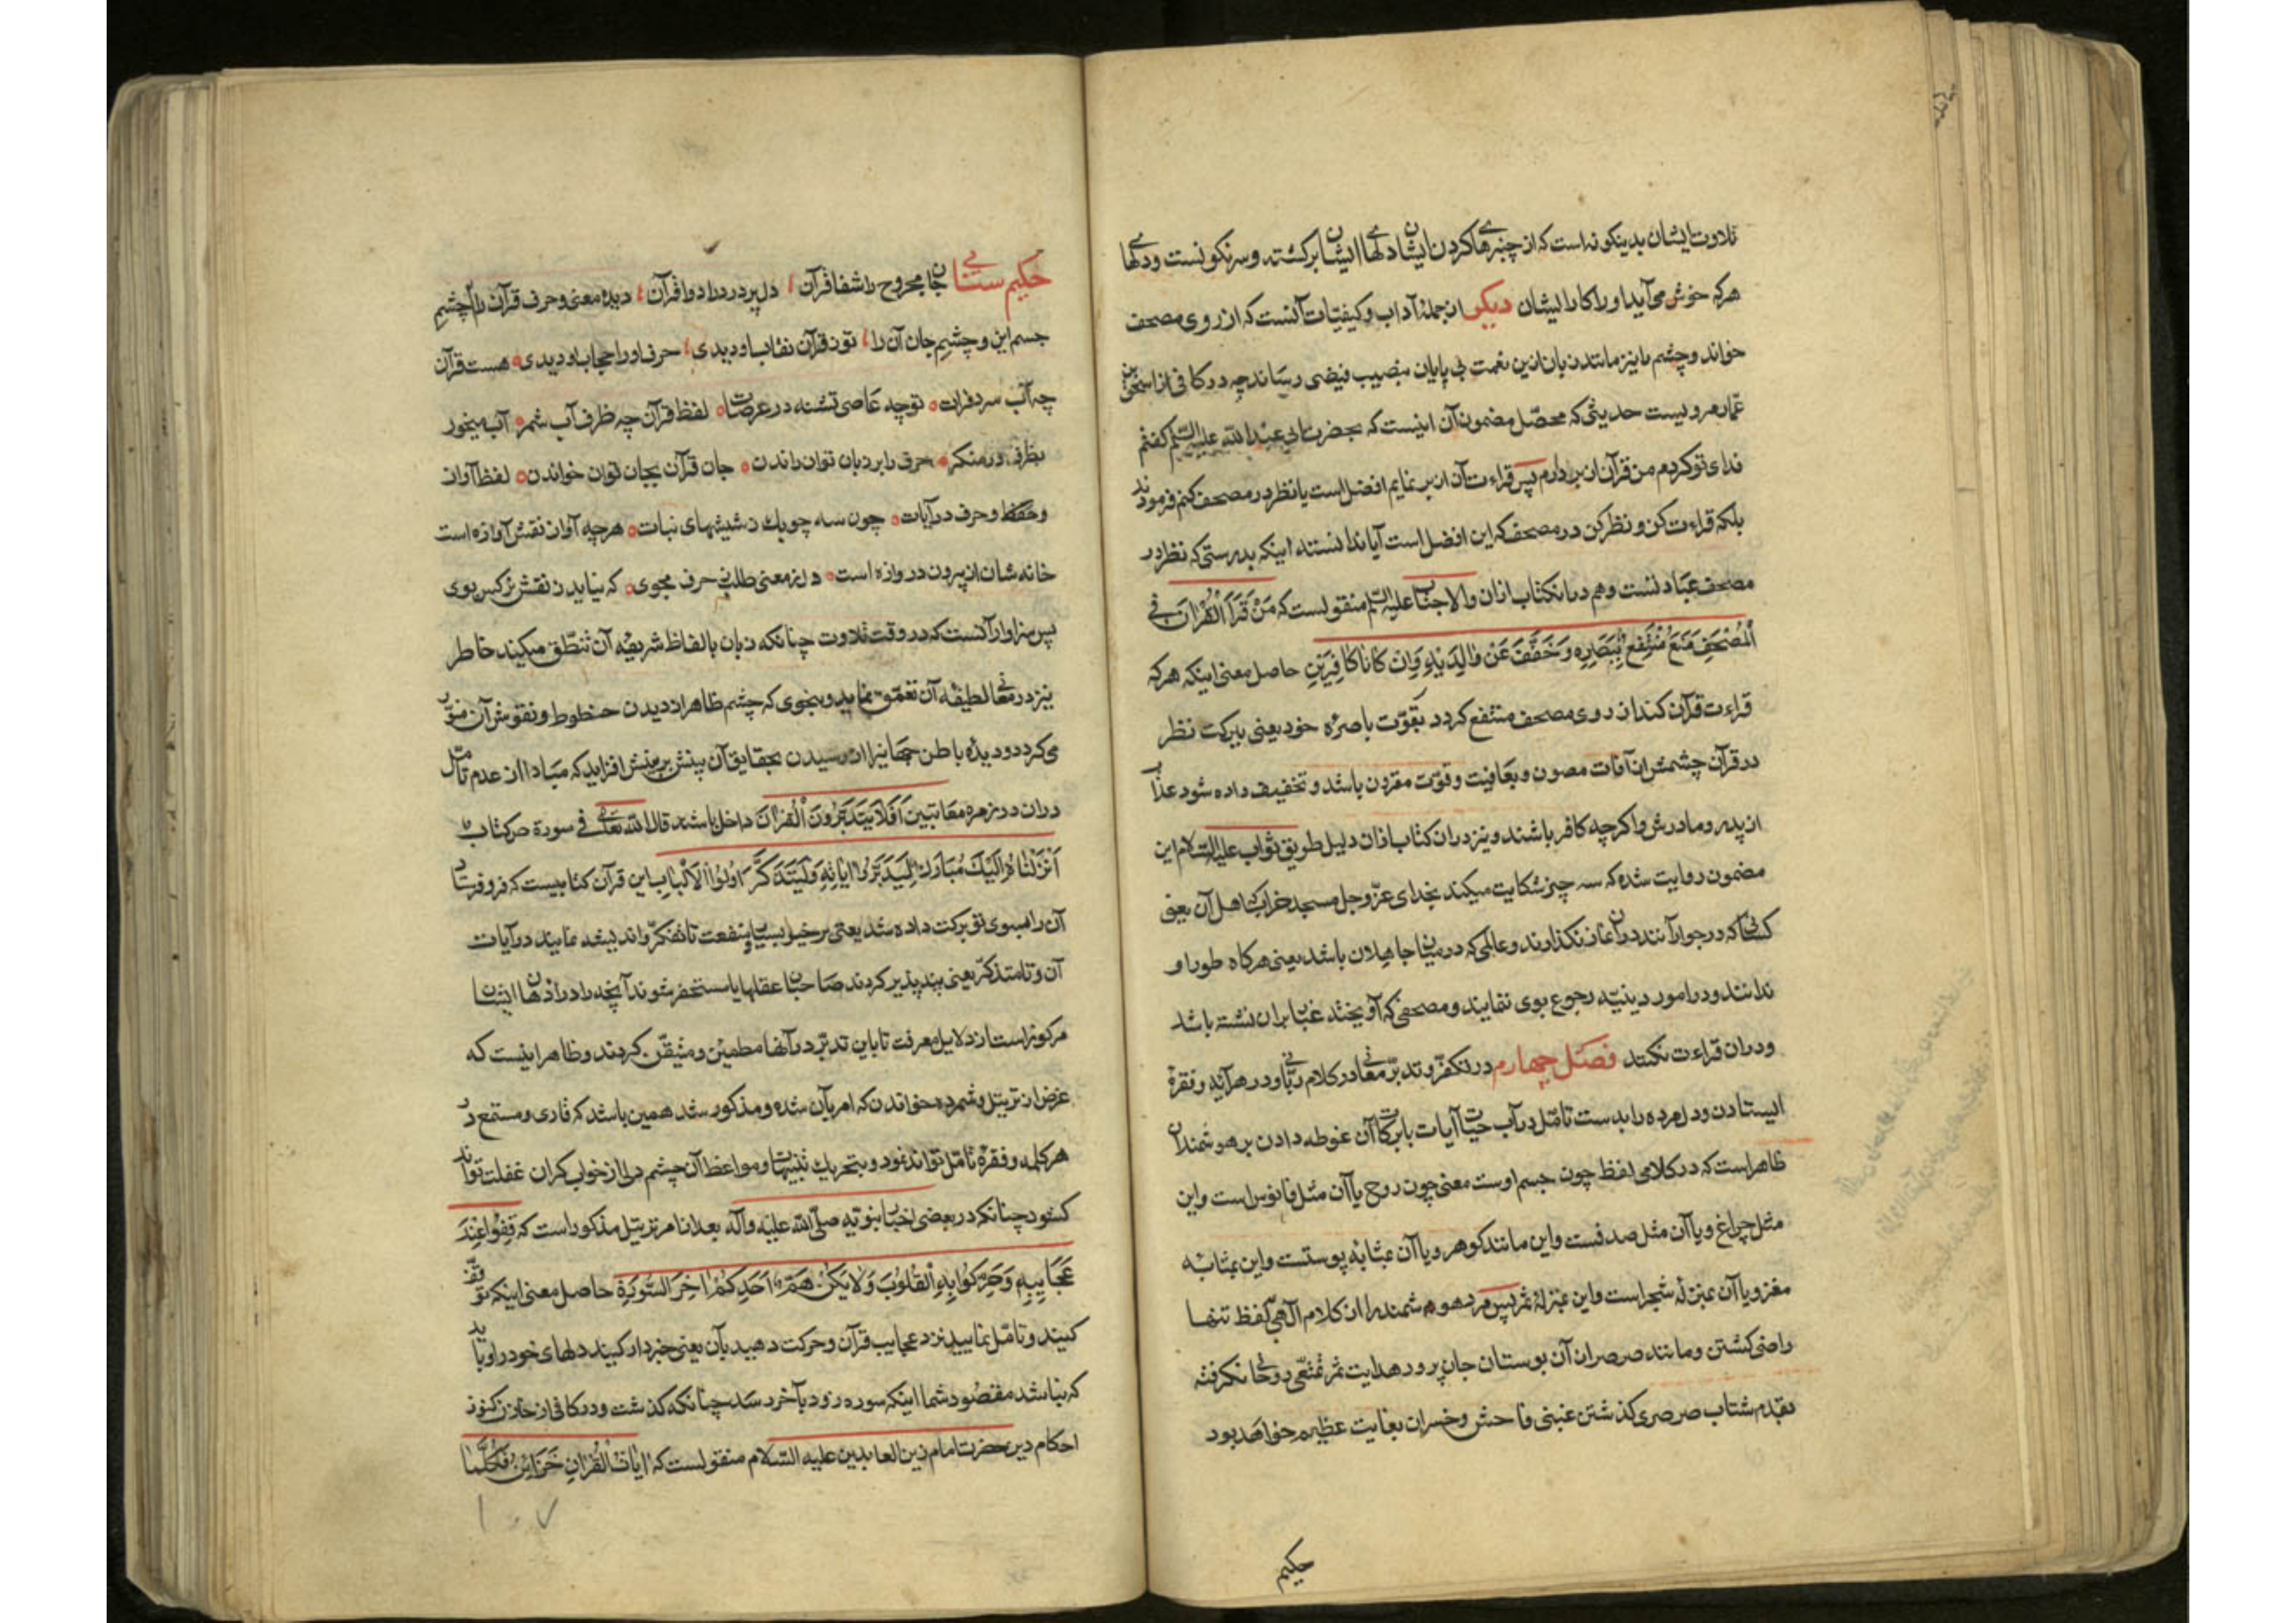 تلاوت ایشان بدینکونه است که از چنبرهای کردن ایشان دلهای ایشان برکشته و سرنکونست و دلهای
هرکه خوش می‌آید او را کار ایشان دیکر از جملهٔ آداب و کیفیّات آنست که از روی مصحف
خواند و چشم را نیز مانند زبان ازین نعمت بی پایان بنصیب فیضی رساند چه در کافی از اسحق بن
عمّار مرویست حدیثی که محصّل مضمون آن اینست که بحضرت ابی عبد الله علیه السّلام کفتم
فدای تو کردم من قرآن از بر دارم پس قراءت آن از بر نمایم افضل است یا نظر در مصحف کنم فرمودند
بلکه قراءت کن و نظر کن در مصحف که این افضل است آیا ندانستهٔ اینکه بدرستی که نظر در
مصحف عبادتست و هم در آنکتاب ازان والاجناب علیه السّلام منقولست که مَنْ قَرَأَ الْقُرْآنَ فِي
الْمُصْحَفِ مُتِّعَ بِبَصَرِهِ وَ خُفِّفَ عَنْ وَالِدَيْهِ وَ اِنْ كَانَا كَافِرَيْنِ حاصل معنی اینکه هرکه
قراءت قرآن کند از روی مصحف منتفع کردد بقوّت باصرهٔ خود یعنی ببرکت نظر
در قرآن چشمش از آفات مصون و بعافیت و قوّت مقرون باشد و تخفیف داده شود عذاب
از پدر و مادرش و اکرچه کافر باشند و نیز دران کتاب ازان دلیل طریق ثواب علیه السّلام این
مضمون روایت شده که سه چیز شکایت میکند بخدای عزّ و جل مسجد خراب که اهل آن یعنی
کسانی که در جوار آنند دران نماز نکذارند و عالمی که در میان جاهلان باشد یعنی هرکاه طور او
ندانند و در امور دینیّه رجوع بوی ننمایند و مصحفی که آویخته غبار بران نشسته باشد
و دران قراءت نکنند فصل چهارم در تفکّر و تدبّر معانی در کلام ربّانی و در هر آیه و فقرهٔ
ایستادن و دل مرده را بدست تامّل در آب حیات آیات با برکات آن غوطه دادن بر هوشمندان
ظاهراست که در کلامی لفظ چون جسم اوست معنی چون روح یا آن مثل فانوس است و این
مثل چراغ و یا آن مثل صدفست و این مانند کوهر و یا آن بمثابه پوستست و این بمثابه
مغز و یا آن بمنزلهٔ شجراست و این بمنزلهٔ ثمر پس مرد هوشمند را از کلام الهی بلفظ تنها
راضی کشتن و مانند صرصر ازان بوستان جان پرور هدایت ثمر تمتّعی روحانی نکرفته
بقدم شتاب صرصری کذشتن غبنی فاحش و خسران بغایت عظیم خواهد بود
حکیم
حکیم سنائی جان مجروح را شفا قرآن دل پر درد را دوا قرآن دیدهٔ معنی و حرف قرآن را چشم
جسم این و چشم جان آن را تو ز قرآن نقاب او دیدی حرف او را حجاب او دیدی هست قرآن
چه آب سرد فرات تو چه عاصی تشنه در عرصات لفظ قرآن چه ظرف آب شمر آب میخور
بظرف در منکر حرف را بر زبان توان راندن جان قرآن بجان توان خواندن لفظ آواز
و حفظ و حرف در آیات چون سه چوبک ز شیشهای نبات هرچه آواز نقش آوازه است
خانه شان از برون دروازه است دل ز معنی طلب ز حرف مجوی که نیابد ز نقش نرکس بوی
پس سزاوار آنست که در وقت تلاوت چنانکه زبان بالفاظ شریفهٔ آن تنطّق میکند خاطر
نیز در معانی لطیفهٔ آن تعمّق نماید و بنحوی که چشم ظاهر از دیدن خطوط و نقوش آن منوّر
می‌کردد دیدهٔ باطن جهانیرا از رسیدن بحقایق آن بینش بر بینش افزاید که مبادا از عدم تامّل
دران در زمره معاتبین اَفَلَا يَتَدَبَّرُونَ الْقُرْآنَ داخل باشد قال الله تعالی فی سورة ص کتاب
اَنْزَلْنَاهُ اِلَيْكَ مُبَارَكٌ لِيَدَّبَّرُوا اٰيَاتِهِ وَ لِيَتَذَكَّرَ اُولُوا الْاَلْبَابِ این قرآن کتابیست که فرو فرستاد
آن را بسوی تو برکت داده شد یعنی پر خیر و بسیار منفعت تا تفکّر و اندیشه نمایند در آیات
آن و تا متذکّر یعنی پند پذیر کردند صاحبان عقلها یا مستحضر شوند آنچه را در اذهان ایشان
مرکوزاست از دلایل معرفت تا باین تدبّر در آنها مطمئن و متیقّن کردند و ظاهر اینست که
غرض از ترتیل و شمرده خواندن که امر بآن شده و مذکور شد همین باشد که قاری و مستمع در
هر کلمه و فقرهٔ تامّل تواند نمود و بتحریک تنبیهات و مواعظ آن چشم دل از خواب کران غفلت تواند
کشود چنانکه در بعضی اخبار نبویّه صلّی الله علیه و آله بعد از امر بترتیل مذکوراست که قِفُوا عِنْدَ
عَجَايِبِهِ وَ حَرِّكُوا بِهِ الْقُلُوبَ وَ لَا يَكُنْ هَمُّ اَحَدِكُمْ اٰخِرَ السُّورَةِ حاصل معنی اینکه توقّف
کنید و تامّل نمایید نزد عجایب قرآن و حرکت دهید بآن یعنی خبردار کنید دلهای خود را و باید
که نباشد مقصود شما اینکه سوره زود بآخر رسد چنانکه کذشت و در کافی از خازن کنوز
احکام دین حضرت امام زین العابدین علیه السّلام منقولست که اٰيَاتُ الْقُرْاٰنِ خَزَايِنُ فَكُلَّمَا
۱۰۷